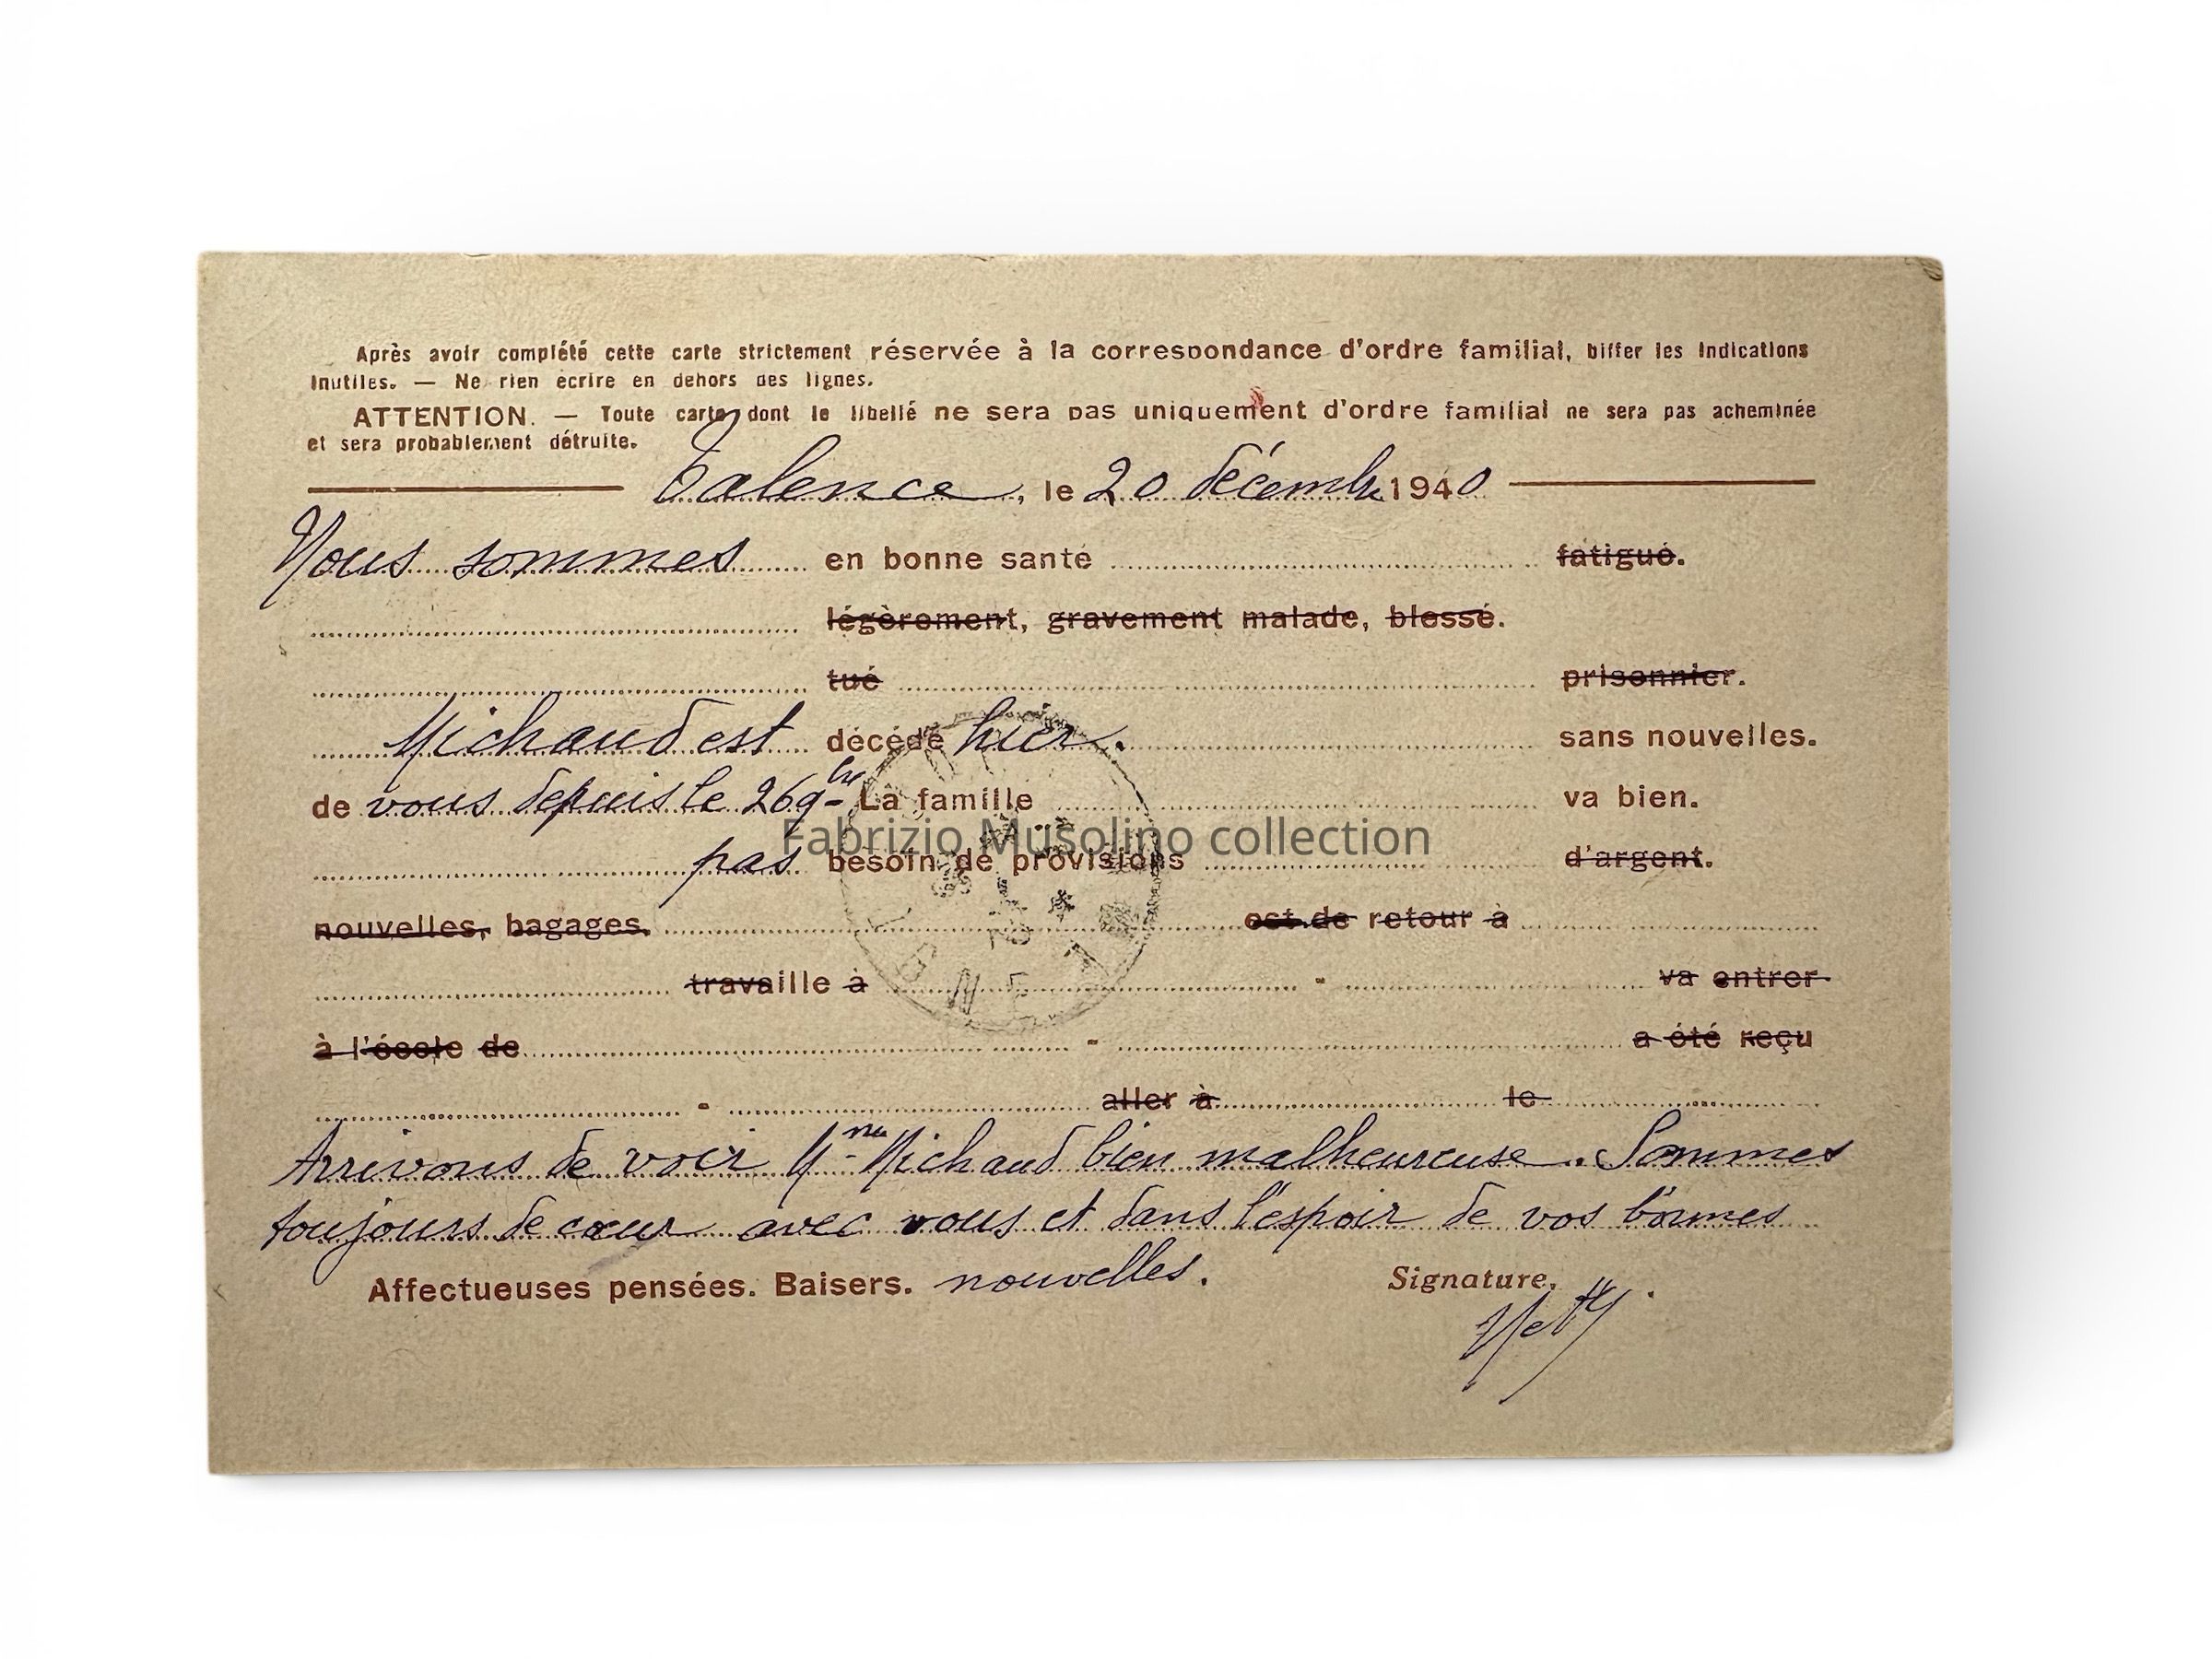 Après avoir complété cette carte strictement réservée à la correspondance d'ordre familial, biffer les indications
inutiles. — Ne rien écrire en dehors des lignes.
ATTENTION. — Toute carte dont le libellé ne sera pas uniquement d'ordre familial ne sera pas acheminée
et sera probablement détruite.
Talence, le 20 décembre 1940
Nous sommes en bonne santé fatigué.
légèrement, gravement malade, blessé.
tué prisonnier.
Michaud est décédé hier. sans nouvelles.
de vous depuis le 26 9bre La famille va bien.
Fabrizio Musolino collection
pas besoin de provisions d'argent.
nouvelles, bagages, est de retour à
travaille à va entrer
à l'école de a été reçu
aller à le
Arrivons de voir Mme Michaud bien malheureuse. Sommes
toujours de cœur avec vous et dans l'espoir de vos bonnes
Affectueuses pensées. Baisers. nouvelles. Signature.